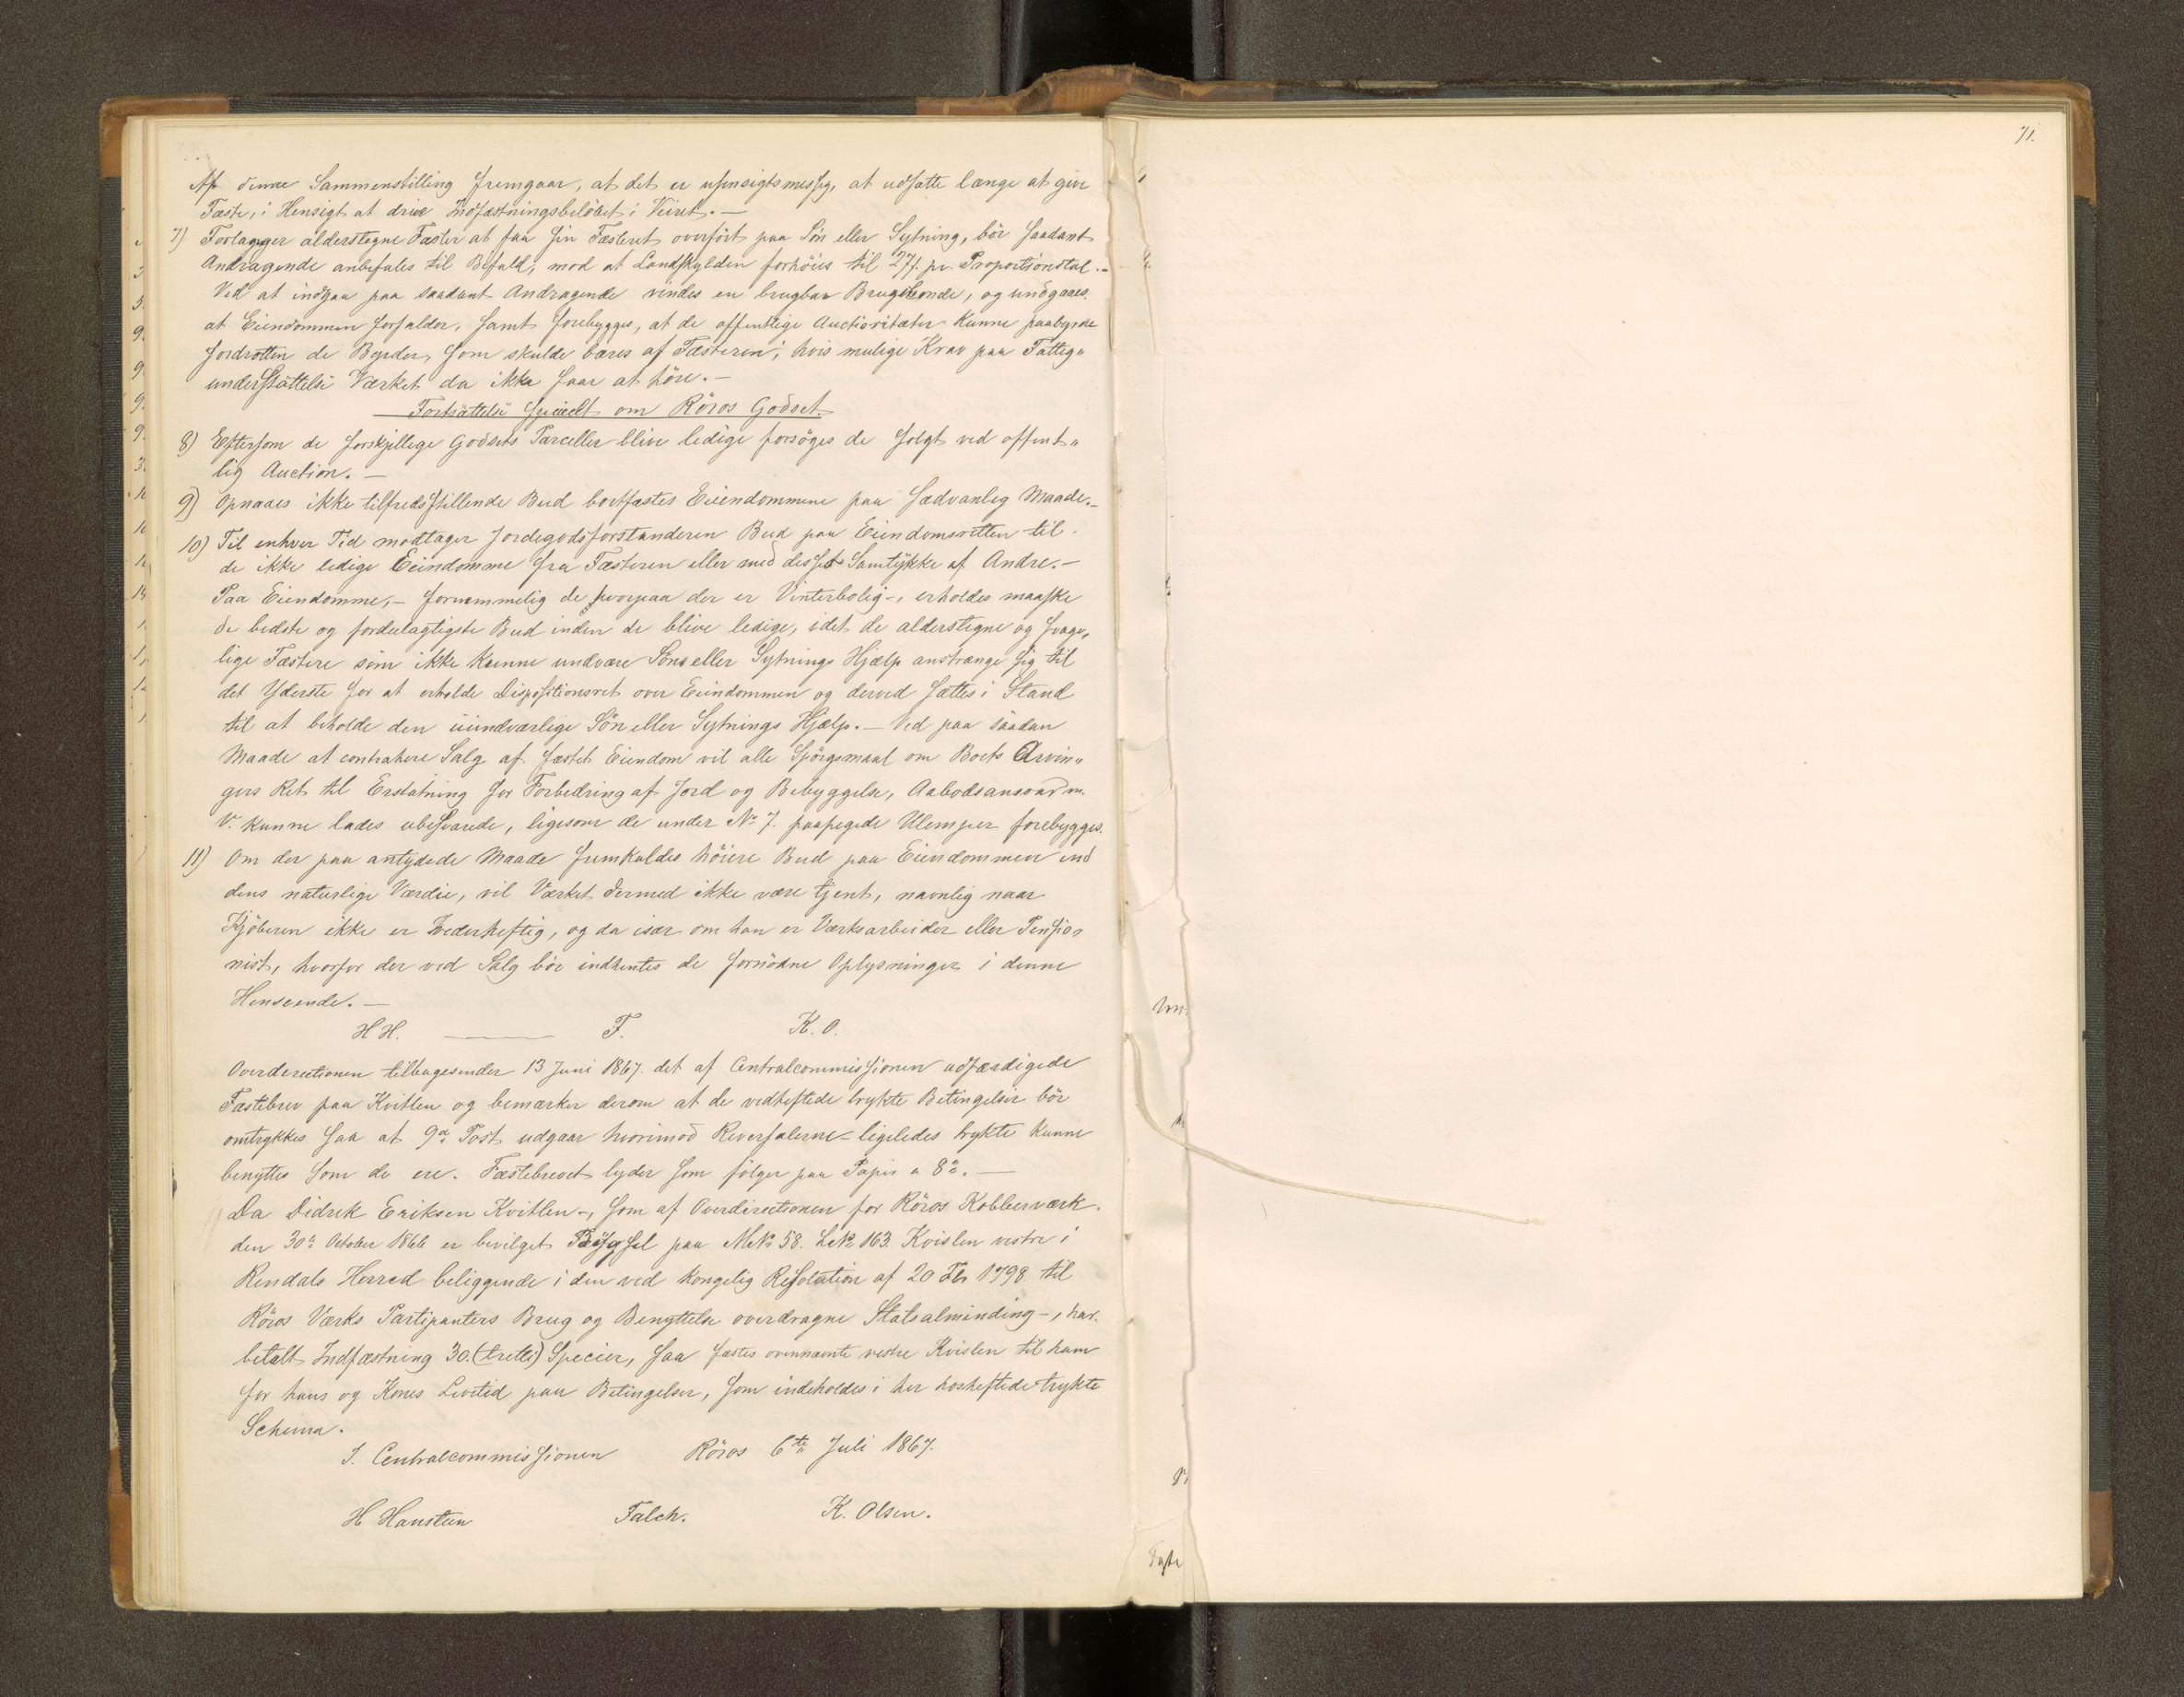 71.
Af denne Sammenstilling fremgaar, at det er uhensigtsmessig, at udsætte længe at give
Fæste, i Hensigt at drive Indfæstningsbelöbet i Veiret. —
7) Forlanger alderstegne Fæster at faa sin Fæsteret overfört paa Sön eller Sytning, bör saadant
Andragende anbefales til Bifald, mod at Landskylden forhöies til 27 f. pr. Proportionstal. -
Ved at indgaa paa saadant Andragende vindes en brugbar Brugsbonde, og undgaaes
at Eiendommen forfalder, samt forebygges, at de offentlige Auctioritæter kunne paabyrde
Jordrotten de Byrder, som skulde bæres af Fæsteren, hvis mulige Krav paa Fattig„
understöttelse Værket da ikke faar at höre. —
Fortsættelse specielt om Röros Godset
8) Eftersom de forskjellige Godsets Parceller blive ledige forsöges de solgt ved offent„
lig Auction. —
9) Opnaaes ikke tilfredsstillende Bud bortfæstes Eiendommene paa sædvanlig Maade. -
10) Til enhver Tid modtager Jordegodsforstanderen Bud paa Eiendomsretten til
de ikke ledige Eiendomme fra Fæsteren eller med dessets Samtykke af Andre. -
Paa Eiendomme, - fornemmelig de hvorpaa der er Vinterbolig -, erholdes maaske
de bedste og fordeelagtigste Bud inden de blive ledige, idet de alderstegne og svage„
lige Fæstere som ikke kunne undvære Söns eller Sytnings Hjælp anstrænge sig til
det Yderste for at erholde Dispositionsret over Eiendommen og derved sættes i Stand
til at beholde den uundværlige Sön eller Sytnings Hjælp. — Ved paa saadan
Maade at contrahere Salg af fæstet Eiendom vil alle Spörgsmaal om Boets Arvin„
gers Ret til Erstatning for Forbedring af Jord og Bebyggelse, Aabodsansvar m.
V. kunne lades ubesvarede, ligesom de under No 7. paapegede Ulemper forebygges.
11) Om der paa antydede Maade fremkaldes höiere Bud paa Eiendommen end
dens naturlige Værdie, vil Værket dermed ikke være tjent, navnlig naar
Kjöberen ikke er Vederheftig, og da især om han er Værksarbeider eller Pensio„
nist, hvorfor der ved Salg bör indhentes de fornödne Oplysninger i denne
Henseende. —
H H. ——— F. K. O.
Overdirectionen tilbagesender 13 Juni 1867. det af Centralcommissionen udfærdigede
Fæstebrev paa Kvitlen og bemærker derom at de vedheftede trykte Betingelser bör
omtrykkes saa at 9de Post udgaar hvorimod Reversalerne ligeledes trykte kunne
benyttes som de ere. Fæstebrevet lyder som fölger paa Papir a 8 —
Da Didrik Eriksen Kvitlen -, som af Overdirectionen for Röros Kobberværk
den 30te October 1866 er bevilget Bygsel paa M No 58. L No 163. Kvislen vestre i
Rendals Herred beliggende i den ved kongelig Resolution af 20 1798 til
Röros Værks Partipanters Brug og Benyttelse overdragne Statsalminding -, har
betalt Indfæstning 30. (tretti) Specier, saa fæstes ovennævnte vestre Kvislen til ham
for hans og Kones Levetid paa Betingelser, som indeholdes i her hosheftede trykte
Schema.
I. Centralcommissionen Röros 6te Juli 1867.
H Hansteen Falch. K. Olsen.